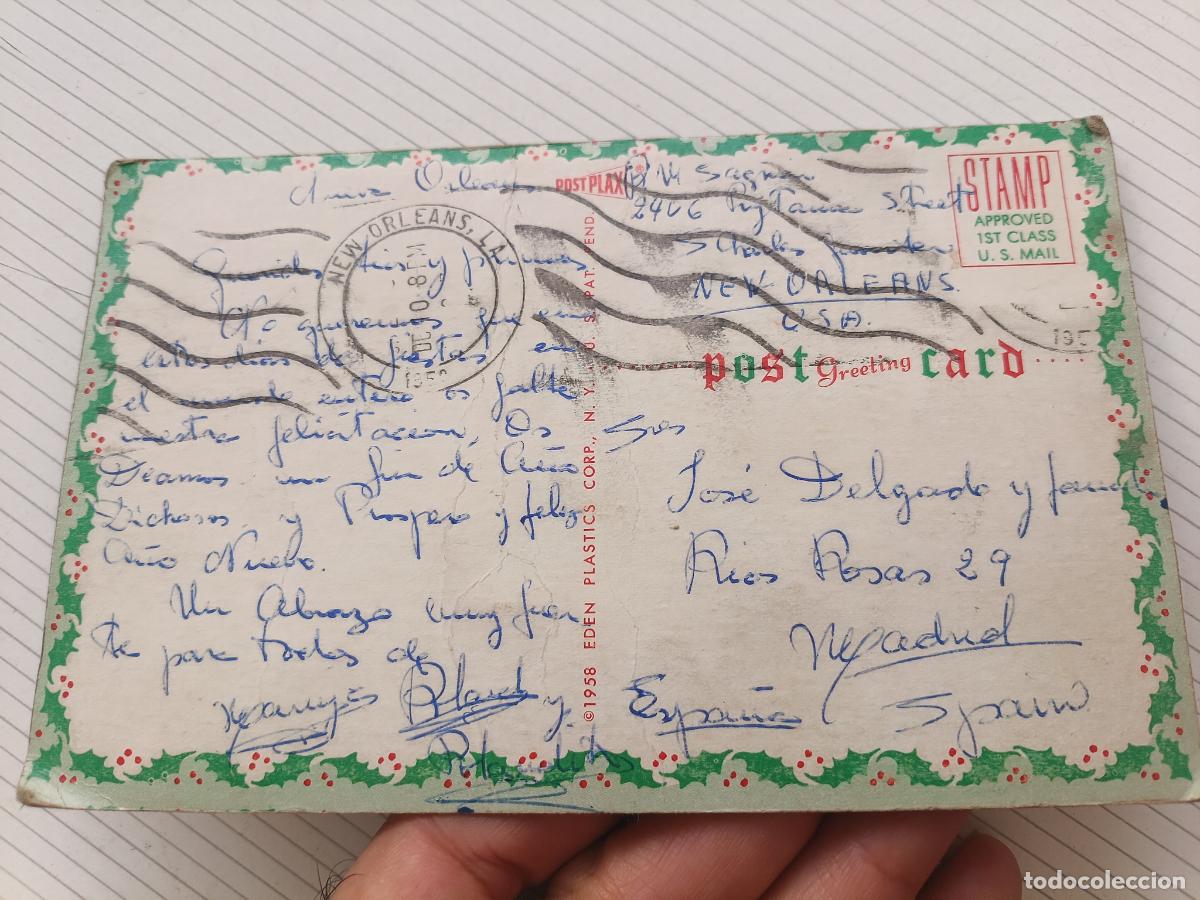 Orleans
Queridos tios y primos
No queremos que en
estos dias de fiestas en
el mundo entero os falte
nuestra felicitacion, Os
Deamos un fin de Año
Dichosos, y Prospero y feliz
Año Nuevo.
Un Abrazo muy fuer
te para todos de
y
NEW ORLEANS, LA.
8 PM
DEC 10
195
POSTPLAX
U. S. PAT. PEND.
©1958 EDEN PLASTICS CORP., N. Y.
2406 Prytania Street
St Charles
NEW ORLEANS.
USA.
STAMP
APPROVED
1ST CLASS
U. S. MAIL
195
post Greeting card
Sres
José Delgado y familia
Rios Rosas 29
Madrid
España Spain
todocoleccion